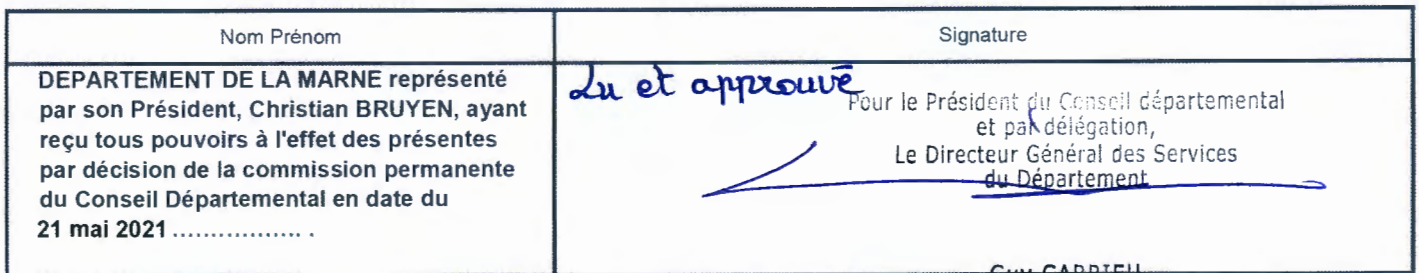 Nom Prénom
Signature
DEPARTEMENT DE LA MARNE représenté
par son Président, Christian BRUYEN, ayant
reçu tous pouvoirs à l'effet des présentes
par décision de la commission permanente
du Conseil Départemental en date du
21 mai 2021 .................. .
Lu et approuvé
Pour le Président du Conseil départemental
et par délégation,
Le Directeur Général des Services
du Département
Guy CARRIEU